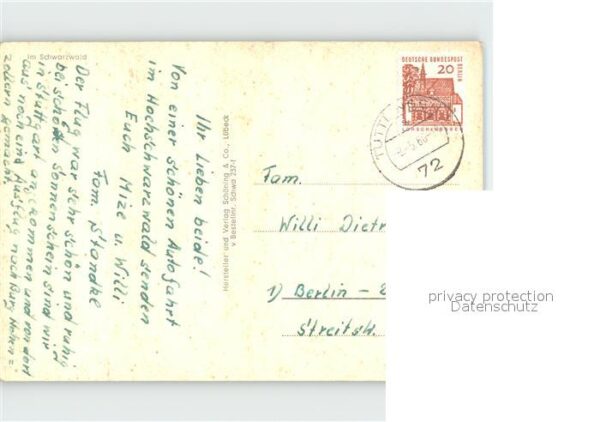 Im Schwarzwald
Ihr Lieben beide!
Von einer schönen Autofahrt
im Hochschwarzwald senden
Euch Mize u. Willi
Fam. Standke
Der Flug war sehr schön und ruhig
bei schönsten Sonnenschein sind wir
in Stuttgart angekommen und von dort
aus noch eine Ausflug nach Burg Hohen=
zollern gemacht.
Hersteller und Verlag Schöning & Co., Lübeck
v Bestellnr. Schwa 257-1
DEUTSCHE BUNDESPOST
BERLIN
20
LORSCH/HESSEN
TUTTL
72
Fam.
Willi Dietr
1) Berlin –
Streitstr.
privacy protection
Datenschutz